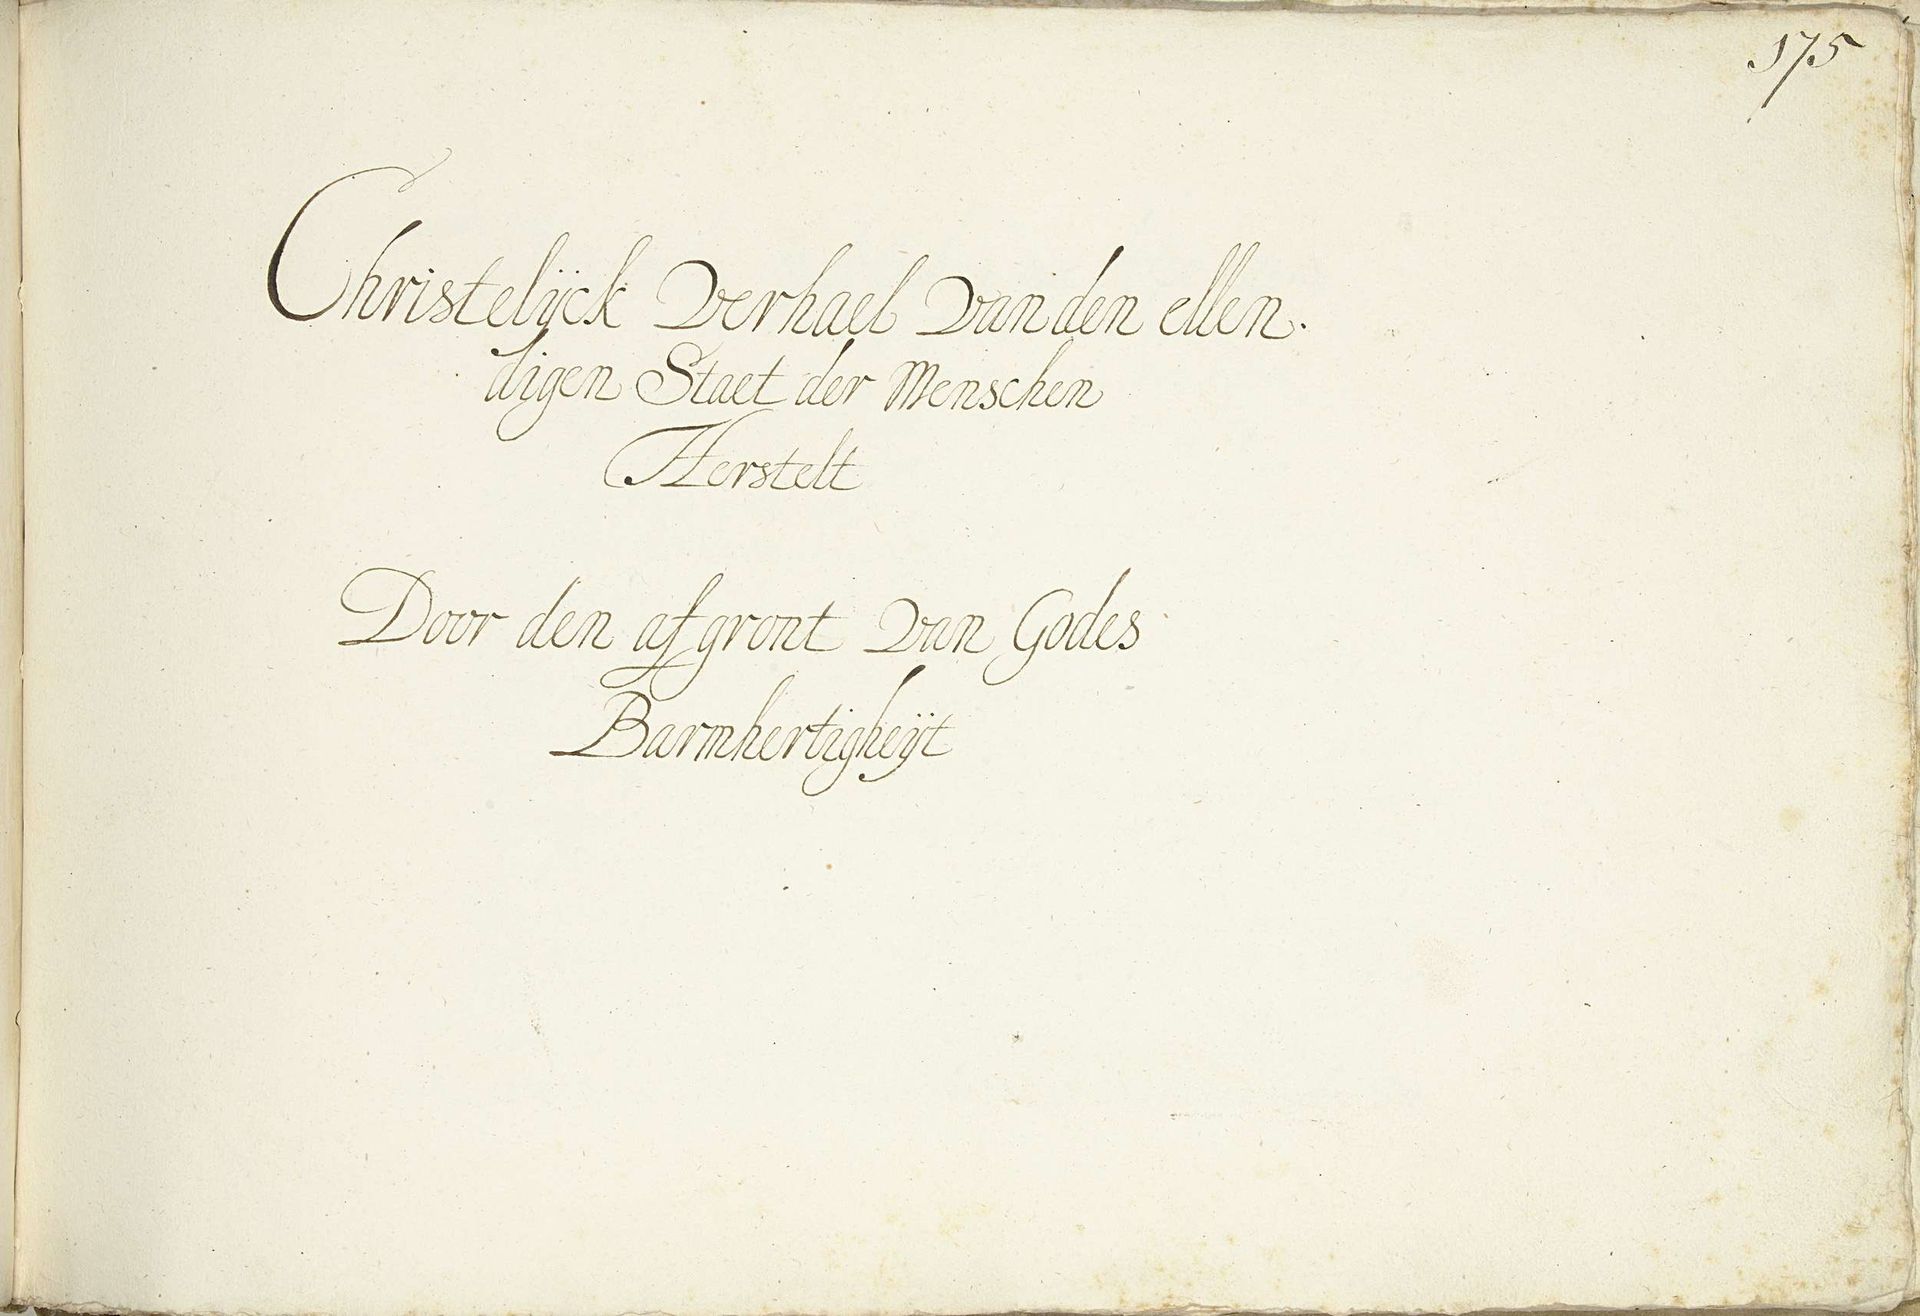 175
Christelijck Verhael van den ellen.
digen Staet der Menschen
Herstelt
Door den afgront van Godes
Barmhertigheijt